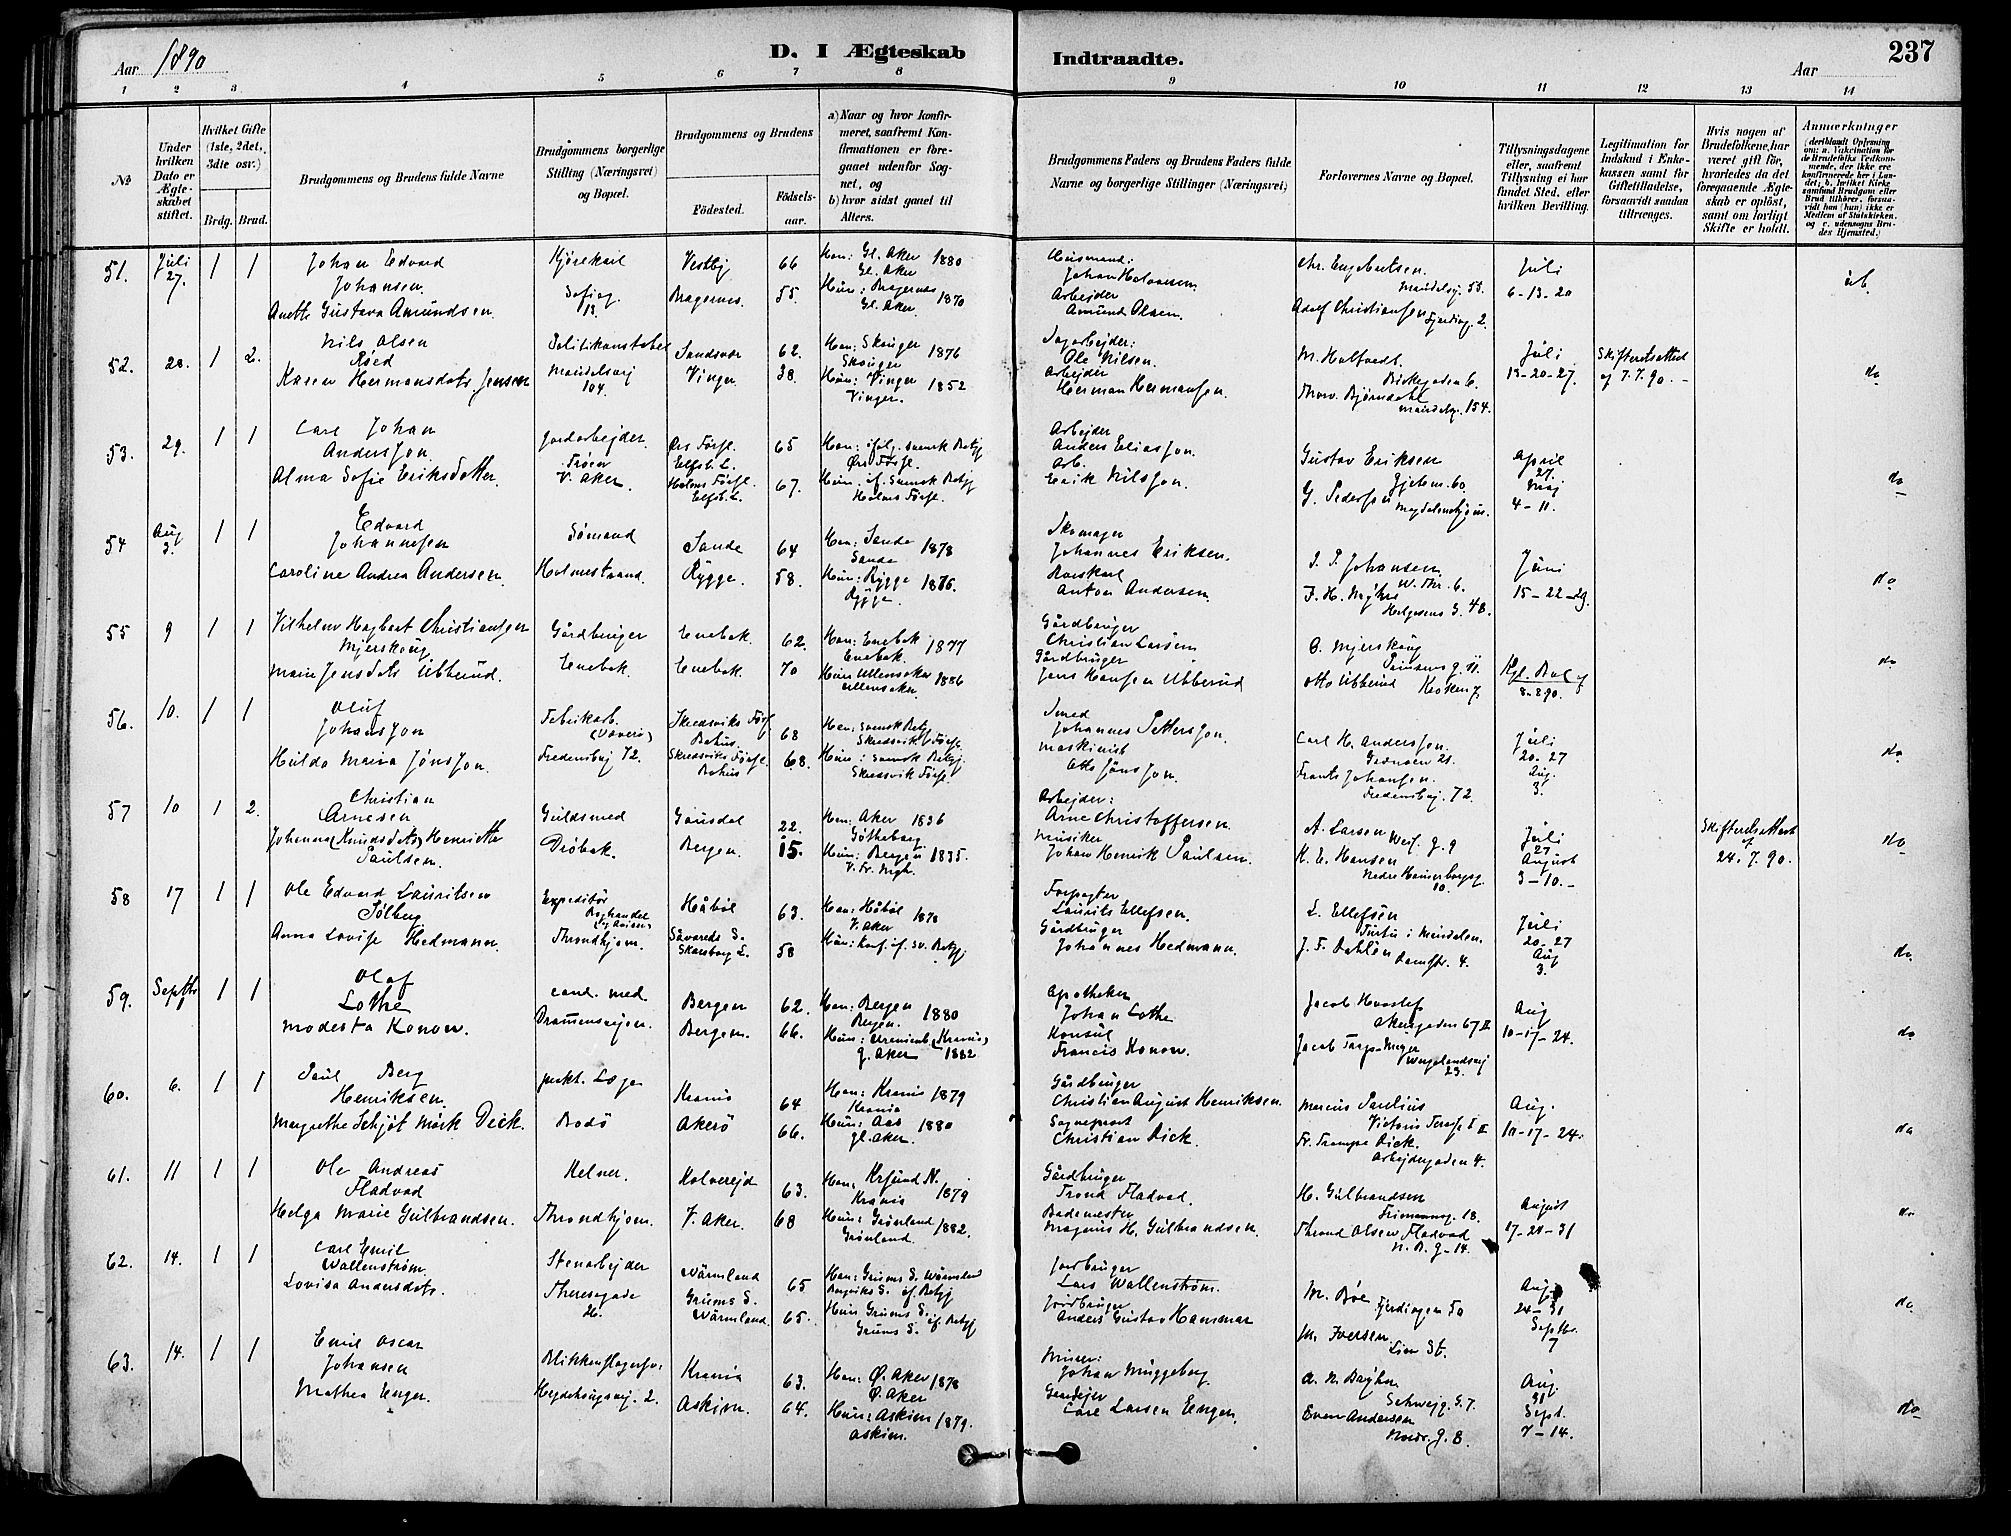 Aar 1890
D. I Ægteskab
Indtraadte.
Aar
237
1 2 3 4 5 6 7 8 9 10 11 12 13 14
No
Under hvilken Dato er Ægteskabet stiftet.
Hvilket Gifte (1ste, 2det, 3die osv.)
Brdg. Brud.
Brudgommens og Brudens fulde Navne
Brudgommens borgerlige Stilling (Næringsvei) og Bopæl.
Brudgommens og Brudens
Fødested.
Fødselsaar.
a) Naar og hvor konfirmeret, saafremt Konfirmationen er foregaaet udenfor Sognet, og
b) hvor sidst gaaet til Alters.
Brudgommens Faders og Brudens Faders fulde Navne og borgerlige Stillinger (Næringsvei)
Forlovernes Navne og Bopæl.
Tillysningsdagene eller, saafremt Tillysning ei har fundet Sted, efter hvilken Bevilling.
Legitimation for Indskud i Enkekassen samt for Giftetilladelse, forsaavidt saadan tiltrænges.
Hvis nogen af Brudefolkene har været gift før, hvorledes da det foregaaende Ægteskab er opløst, samt om lovligt Skifte er holdt.
Anmærkninger
51. Juli 27. 1 1
Johan Edvard Johansen
Anette Gustava Amundsen.
Kjørekarl
Sofieg. 13.
Vestby 66
Bragernes. 55.
Han: Gl. Aker 1880
Gl. Aker
Hun: Bragernes 1870
Gl. Aker.
Husmand:
Johan Halvorsen.
Arbejder
Amund Olsen.
Chr. Engebretsen.
Maridalsv. 53.
Adolf Christiansen
Fjerding. 2.
Juli
6-13-20
52. 28. 1 2.
Nils Olsen Røed
Karen Hermansdatr Jensen
Politikonstabel
Maridalsvej 104.
Sandsvær 62.
Vinger 38.
Han: Skouger 1876
Skouger
Hun: Vinger 1852
Vinger.
Dagarbejder:
Ole Nilsen.
Arbejder
Herman Hermansen.
M. Halfvordt.
Birkegaden 6.
Thorv. Bjørndahl
Maridalsv. 154.
Juli
13-20-27.
Skifteretsattest
af 7.7.90.
do
53. 29. 1 1
Carl Johan Andersson.
Alma Sofie Eriksdatter.
Jordarbejder.
Troen
V. Aker.
Ørs Førsl.
Elfsb. L. 65
Holms Førsl.
Elfsb. L. 67.
Han: ifølg. svensk Betyg
Ørs Førsl.
Hun: if. svensk Betyg
Holms Førsl.
Arbejder
Anders Eliasson.
Arb.
Erik Nilsson.
Gustav Eriksen
Gjetem. 60.
G. Pedersen
April 27.
Maj
4-11.
do
54 Aug 3. 1 1
Edvard Johannesen
Caroline Andrea Andersen.
Sømand
Holmestrand.
Sande 64
Rygge. 58.
Han: Sande 1878
Sande
Hun: Rygge 1875.
Rygge.
Skomager
Johannes Eriksen.
Anton Andersen.
J. P. Johansen
W. Thr. 6.
Helgesens G. 48.
Juni
15-22-29.
do
55 9 1 1
Vilhelm Hagbart Christiansen Mjerskoug
Maren Jensdatr Ubberud.
Gårdbruger
Enebak.
Enebak 62.
Enebak 70
Han: Enebak 1877
Enebak.
Hun: Ullensaker 1886
Ullensaker.
Gårdbruger
Christian Larsen
Gårdbruger
Jens Hansen Ubberud
O. Mjerskoug
Otto Ubberud
Kgl. Bev. af
8-8 90.
do
56. 10. 1 1
Oluf Johansson
Hulda Maria Jønsson.
Fabrikarb.
Fredensvej 72.
Skredsviks Førs.
Bohus. 68
Skredsviks Førsl.
Bohus 68.
Han: svensk Betyg
Skredsvik Førsl.
Hun: svensk Betyg.
Skredsvik Førsl.
Smed
Johannes Pettersson.
Maskinist
Otto Jønsson.
Carl H. Andersson.
Grænsen 21.
Frants Johansen.
Fredensvej. 72.
Juli
20-27
Aug.
3.
do
57 10 1 2.
Christian Arnesen
Johanne (Knudsdatr) Henriette Paulsen.
Guldsmed
Drøbak.
Gausdal 22.
Bergen. 15.
Han: Aker 1836
Gøtheborg
Hun: Bergen 1835.
V. Fr. Mgh.
Arbejder:
Arne Christoffersen.
Musiker
Johan Henrik Paulsen.
A. Larsen
K. E. Hansen
Nedre Hausmborgg.
10.
Juli
27
August
3-10.-
Skifteretsattest
af
24. 7. 90.
do
58 17 1 1
Ole Edvard Lauritsen Solberg
Anna Lovise Hedmann.
Expeditør
Throndhjem.
Håbøl 63.
Såvareds S.
Skarsborg L. 58
Han: Håbøl 1878
V. Aker
Hun: Konf. if. sv. Betyg.
Forpagter
Laurits Ellefsen.
Gårdbruger
Johannes Hedmann.
L. Ellefsen
J. F. Dahlen
Damstr. 4.
Juli
20-27
Aug
3.
do.
59. Septbr 1 1
Olaf Lothe
Modesta Konow.
cand. med.
Drammensvejen.
Bergen 62.
Bergen. 66.
Han: Bergen 1880
Bergen.
Hun: (Krania)
g. Aker 1882.
Apotheker
Johan Lothe
Konsul
Francis Konow.
Jacob
Akersgaden 67 II
Jacob
Wergelandsvej
23.
Aug
10-17-24.
do
60. 6. 1 1
Paul Berg Henriksen.
Margrethe Schjøt Mørk Dick.
prakt. Læge
Bodø
Krania 64
Akerø 66.
Han: Krania 1879
Krania
Hun: Aas 1880
gl. Aker.
Gårdbruger
Christian August Henriksen.
Sogneprest
Christian Dick.
Marcus Paulius
Victoria Terasse 5 II
Fr. Trampe Dick.
Arbejdergaden 4.
Aug.
10-17-24.
do
61. 11 1 1
Ole Andreas Fladvad
Helga Marie Gulbrandsen.
Kelner.
Throndhjem.
Kolverejd 63.
V. Aker. 68
Han: Krsund N. 1879
Krania
Hun: Grønland 1882.
Grønland.
Gårdbruger
Trond Fladvad.
Bademester
Magnus H. Gulbrandsen.
H. Gulbrandsen
18.
Thrond Olsen Fladvad
N. B. G-14.
August
17-24-31
do
62. 14. 1 1
Carl Emil Wallenstrøm.
Lovisa Andersdatr.
Stenarbejder
Theresegade
26.
Wärmland 65
Grums S.
Wärmland. 65.
Han: Grums S. Wärmland
if. Betyg
Hun: Grums S. if. Betyg
Grums S.
Jordbruger
Lars Wallenstrøm.
Jordbruger
Anders Gustav Hammar
M. Bøe
Fjerdingen 5a
M. Iversen.
Lier St.
Aug
24-31
Septbr.
7
do.
63. 14. 1 1
Emil Oscar Johansen
Mathea Enger.
Blikkenslagersv.
Hegdehaugsvej. 2.
Krania 63.
Askim. 64.
Han: Ø. Aker 1878
Ø. Aker
Hun: Askim 1879.
Askim.
Murer:
Johan Muggeberg.
Gaardejer
Carl Larsen Enger.
A. N. Brøhn
Schweig. G. 7.
Even Andersen
Nordr. g. 8.
Aug.
31
Sept.
7-14.
do